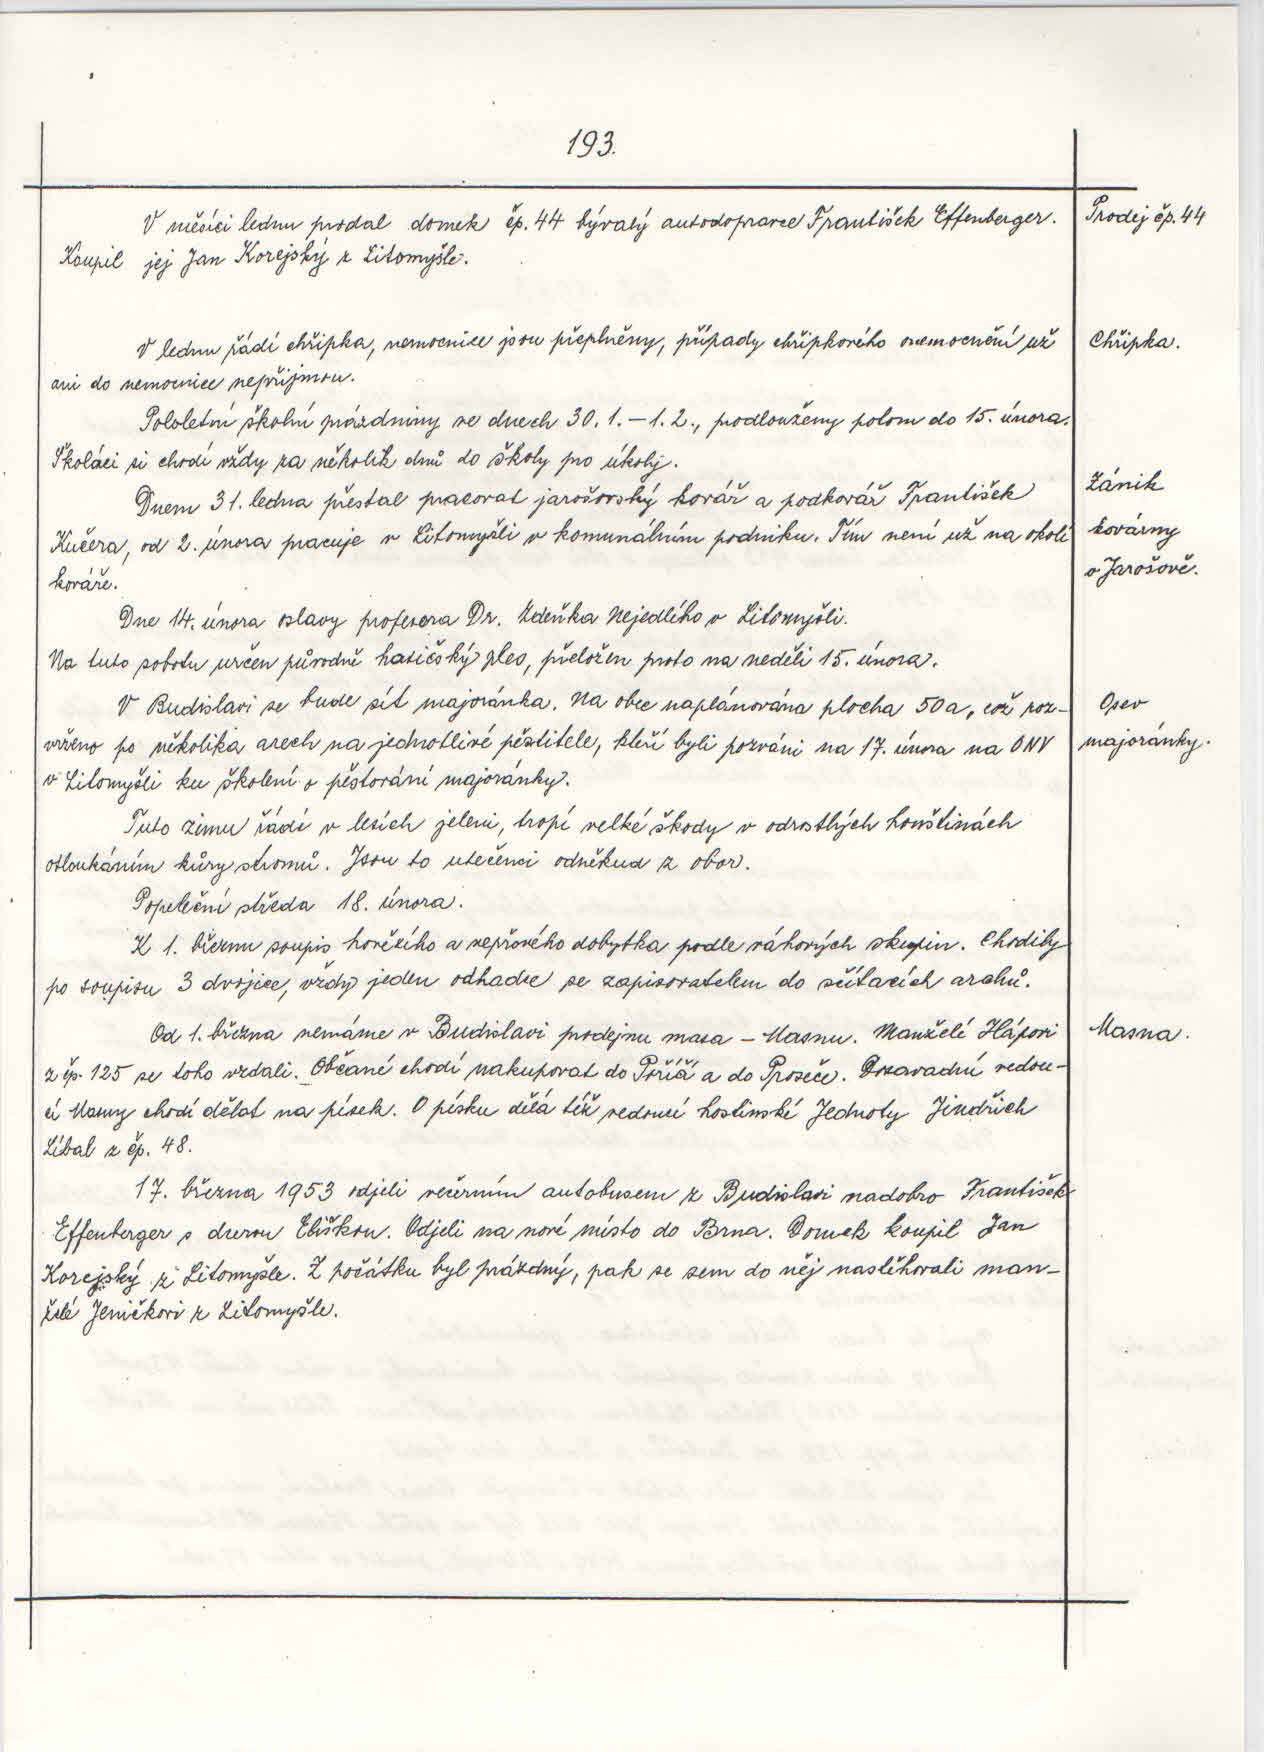 193.
V měsíci lednu prodal domek čp. 44 bývalý autodopravce František Effenberger.
Prodej čp. 44
Koupil jej Jan Korejský z Litomyšle.
V lednu řádí chřipka, nemocnice jsou přeplněny, případy chřipkového onemocnění už
Chřipka.
ani do nemocnice nepřijmou.
Pololetní školní prázdniny ve dnech 30. 1. – 1. 2., prodlouženy potom do 15. února.
Školáci si chodí vždy za několik dnů do školy pro úkoly.
Dnem 31. ledna přestal pracovat jarošovský kovář a podkovář František
Zánik
Kučera, od 2. února pracuje v Litomyšli v komunálním podniku. Tím není už na okolí
kovárny
kováře.
v Jarošově.
Dne 14. února oslavy profesora Dr. Zdeňka Nejedlého v Litomyšli.
Na tuto sobotu určen původně hasičský ples, přeložen proto na neděli 15. února.
V Budislavi se bude sít majoránka. Na obec naplánována plocha 50 a, což roz-
Osev
vrženo po několika arech na jednotlivé pěstitele, kteří byli pozváni na 17. února na ONV
majoránky.
v Litomyšli ku školení o pěstování majoránky.
Tuto zimu řádí v lesích jeleni, tropí velké škody v odrostlých houštinách
otloukáním kůry stromů. Jsou to utečenci odněkud z obor.
Popeleční středa 18. února.
K 1. březnu soupis hovězího a vepřového dobytka podle váhových skupin. Chodily
po soupisu 3 dvojice, vždy jeden odhadce se zapisovatelem do sčítacích archů.
Od 1. března nemáme v Budislavi prodejnu masa – Masnu. Manželé Hápovi
Masna.
z čp. 125 se toho vzdali. Občané chodí nakupovat do Poříčí a do Proseče. Dosavadní vedou-
cí Masny chodí dělat na písek. O písku dělá též vedoucí hostinské Jednoty Jindřich
Líbal z čp. 48.
17. března 1953 odjeli večerním autobusem z Budislavi nadobro František
Effenberger s dcerou Eliškou. Odjeli na nové místo do Brna. Domek koupil Jan
Korejský z Litomyšle. Z počátku byl prázdný, pak se sem do něj nastěhovali man-
želé Jeničkovi z Litomyšle.